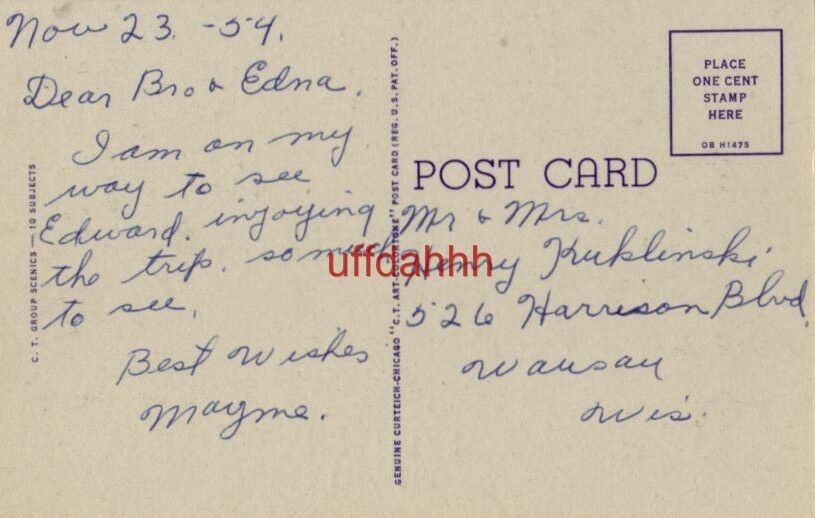 Nov 23. -54.
Dear Bro & Edna.
I am on my
way to see
Edward. injoying
the trip. so much
to see.
Best Wishes
Mayme.
C. T. GROUP SCENICS — 10 SUBJECTS
GENUINE CURTEICH-CHICAGO "C.T. ART-COLORTONE" POST CARD (REG. U.S. PAT. OFF.)
PLACE
ONE CENT
STAMP
HERE
OB H1475
POST CARD
Mr & Mrs.
Henry Kuklinski
526 Harrison Blvd.
Wausau
Wis.
uffdahhh